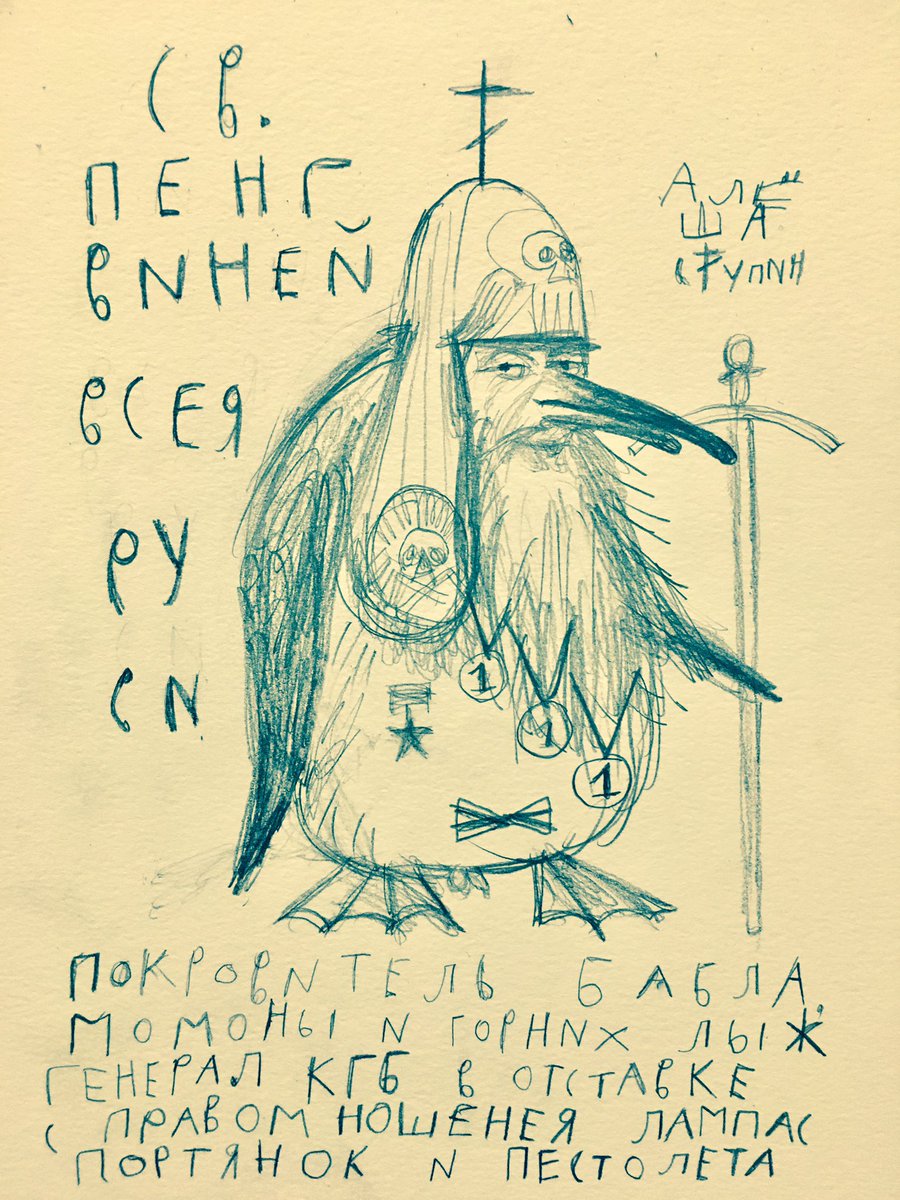 СВ.
ПЕНГ
ВИНЕЙ
ВСЕЯ
РУ
СИ
АЛЁ
ША
СТУПИН
1
1
1
ПОКРОВИТЕЛЬ БАБЛА,
МОМОНЫ И ГОРНИХ ЛЫЖ
ГЕНЕРАЛ КГБ В ОТСТАВКЕ
С ПРАВОМ НОШЕНЕЯ ЛАМПАС
ПОРТЯНОК И ПЕСТОЛЕТА